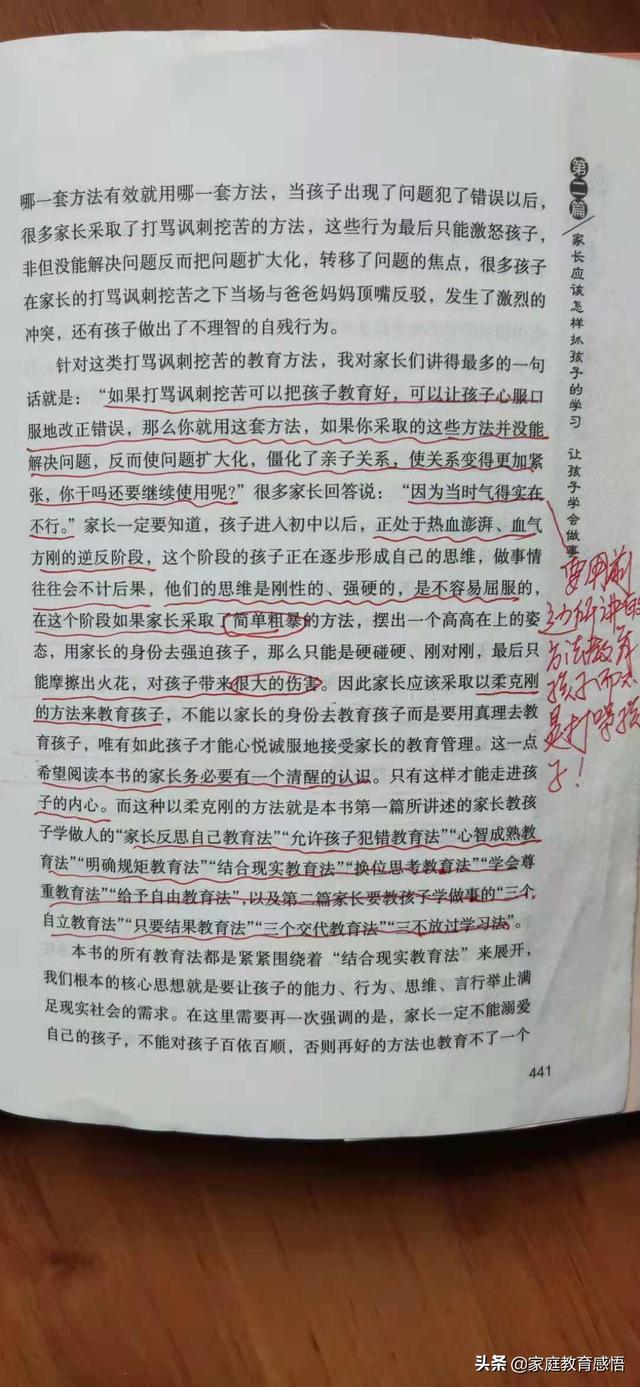 哪一套方法有效就用哪一套方法，当孩子出现了问题犯了错误以后，
很多家长采取了打骂讽刺挖苦的方法，这些行为最后只能激怒孩子，
非但没能解决问题反而把问题扩大化，转移了问题的焦点，很多孩子
在家长的打骂讽刺挖苦之下当场与爸爸妈妈顶嘴反驳，发生了激烈的
冲突，还有孩子做出了不理智的自残行为。
针对这类打骂讽刺挖苦的教育方法，我对家长们讲得最多的一句
话就是：“如果打骂讽刺挖苦可以把孩子教育好，可以让孩子心服口
服地改正错误，那么你就用这套方法，如果你采取的这些方法并没能
解决问题，反而使问题扩大化，僵化了亲子关系，使关系变得更加紧
张，你干吗还要继续使用呢？”很多家长回答说：“因为当时气得实在
不行。”家长一定要知道，孩子进入初中以后，正处于热血澎湃、血气
方刚的逆反阶段，这个阶段的孩子正在逐步形成自己的思维，做事情
往往会不计后果，他们的思维是刚性的、强硬的，是不容易屈服的，
在这个阶段如果家长采取了简单粗暴的方法，摆出一个高高在上的姿
态，用家长的身份去强迫孩子，那么只能是硬碰硬、刚对刚，最后只
能摩擦出火花，对孩子带来很大的伤害。因此家长应该采取以柔克刚
的方法来教育孩子，不能以家长的身份去教育孩子而是要用真理去教
育孩子，唯有如此孩子才能心悦诚服地接受家长的教育管理。这一点
希望阅读本书的家长务必要有一个清醒的认识。只有这样才能走进孩
子的内心。而这种以柔克刚的方法就是本书第一篇所讲述的家长教孩
子学做人的“家长反思自己教育法”“允许孩子犯错教育法”“心智成熟教
育法”“明确规矩教育法”“结合现实教育法”“换位思考教育法”“学会尊
重教育法”“给予自由教育法”，以及第二篇家长要教孩子学做事的“三个
自立教育法”“只要结果教育法”“三个交代教育法”“三不放过学习法”。
本书的所有教育法都是紧紧围绕着“结合现实教育法”来展开，
我们根本的核心思想就是要让孩子的能力、行为、思维、言行举止满
足现实社会的需求。在这里需要再一次强调的是，家长一定不能溺爱
自己的孩子，不能对孩子百依百顺，否则再好的方法也教育不了一个
441
第二篇
家长应该怎样抓孩子的学习 让孩子学会做事
要用前
讲的
方法教育
孩子而不
是打骂孩
子！
头条 @家庭教育感悟